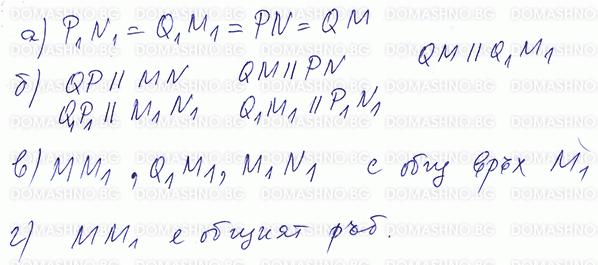 а) P₁N₁ = Q₁M₁ = PN = QM
QM || Q₁M₁
б) QP || MN QM || PN
Q₁P₁ || M₁N₁ Q₁M₁ || P₁N₁
в) MM₁, Q₁M₁, M₁N₁ с общ връх M₁
г) MM₁ е общият ръб.